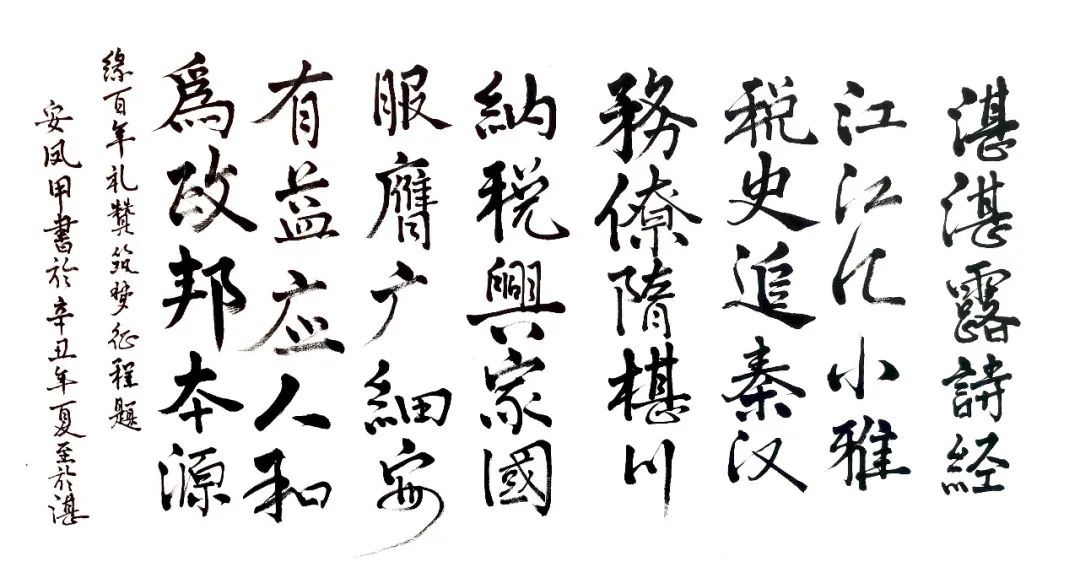 湛湛露詩経
江江汜小雅
税史追秦汉
務僚隋椹川
納税興家國
服膺广細安
有益应人和
爲政邦本源
缘百年礼賛筑梦征程题
安凤甲書於辛丑年夏至於湛